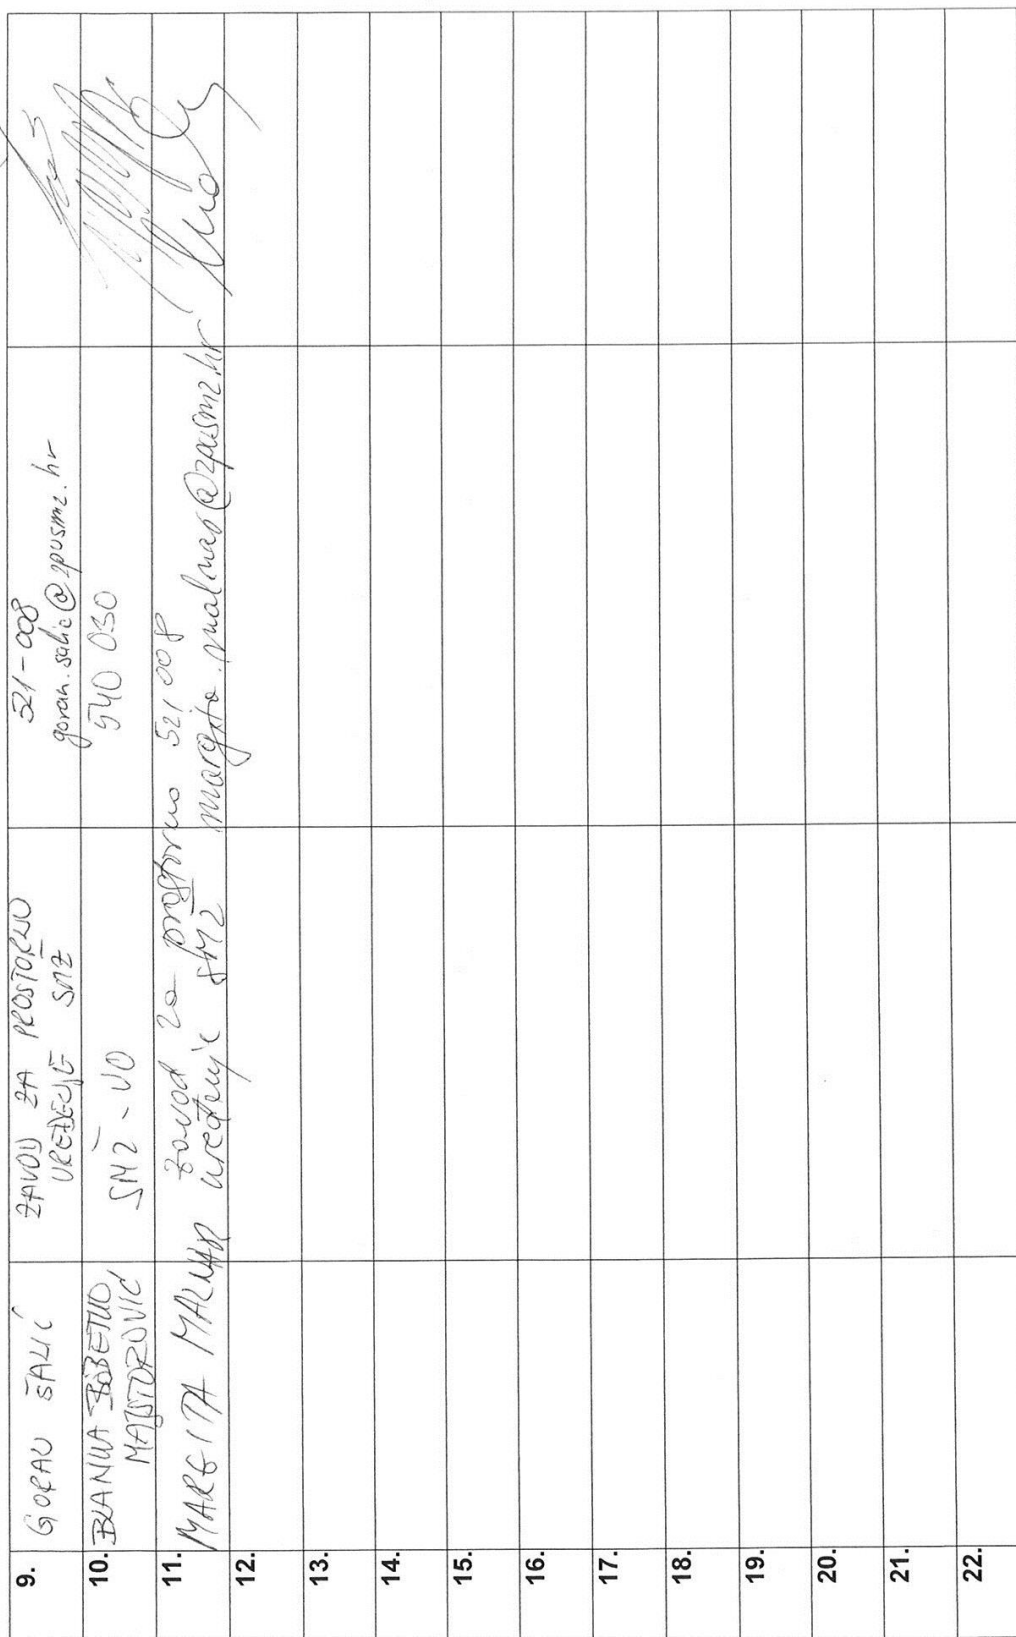 9.
GORAN ŠALIĆ
ZAVOD ZA PROSTORNO
UREĐENJE SMŽ
521-008
goran.salic@zpusmz.hr
10.
BLANKA BOBETKO
MAJSTOROVIĆ
SMŽ - UO
540 030
11.
MARGITA MALNAR
Zavod za prostorno
uređenje SMŽ
521 008
margita.malnar@zpusmz.hr
12.
13.
14.
15.
16.
17.
18.
19.
20.
21.
22.